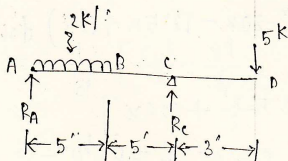 2K/'
5K
A B C D
RA Rc
5' 5' 3'